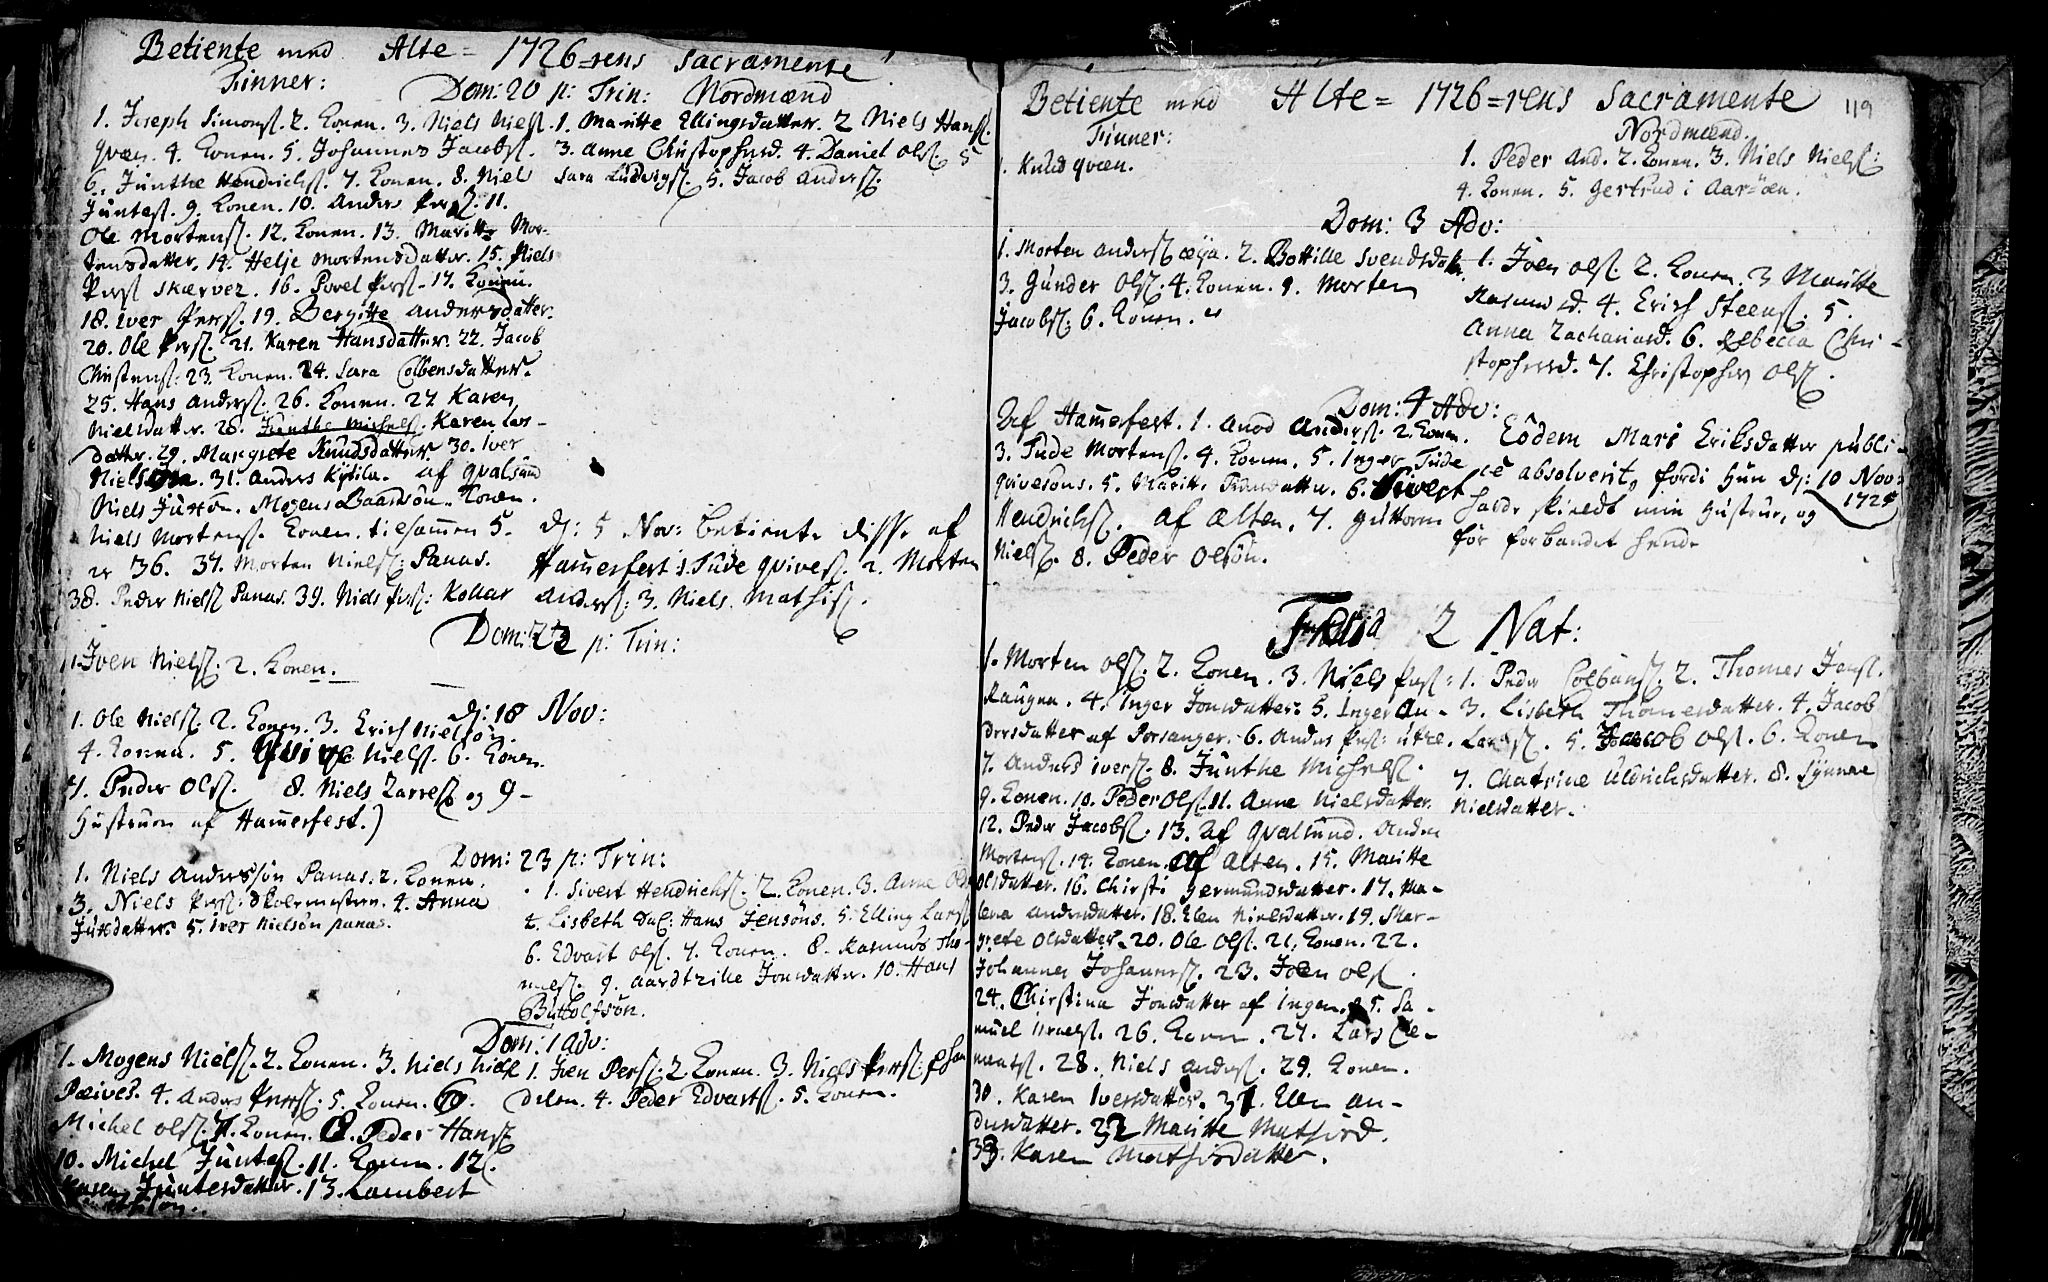 Betiente med Alte = 1726=rens Sacramente
Finner:
Dom: 20 p: Trin: Nordmænd
1. Joseph Simonsß. 2. Konen. 3. Niels Nielß.
qvæn. 4. Konen. 5. Johannes Jacobß.
6. Junthe Hendrichß. 7. Konen. 8. Niels
Juntesß. 9. Konen. 10. Anders Persß. 11.
Ole Mortensß. 12. Konen. 13. Maritte Mor-
tensdatter. 14. Helje Mortensdatter. 15. Niels
Persß skærvez. 16. Povel Persß. 17. Konen.
18. iver Persß. 19. Bergitte Andersdatter.
20. Ole Persß. 21. Karen Hansdatter. 22. Jacob
Christensß: 23. Konen. 24. Sara Colbensdatter.
25. Hans Andersß. 26. Konen. 27 Karen
Nielsdatter. 28. Junthe Michelsß. Karen Lars-
datter. 29. Margrete Knudsdatter. 30. Iver
Nielsøn. 31. Anders Kytila. af qvalsund
Niels Jusøn. Mogens Baardsøn. Konen.
Niels Mortensß. Konen. tilsamen 5.
er 36. 37. Morten Nielsß: Panas.
38. Peder Nielsß Panas. 39. Niels Persß: Kollar
1. Maritte Ellingsdatter. 2 Niels Hansß.
3. Anne Christophersd. 4. Daniel Olsß. 5
Sara Ludvigsß. 5. Jacob Andersß.
d: 5 Nov: betiente disse af
Hamerfest 1. Tude qvivesß. 2. Morten
Andersß: 3. Niels Mathisß.
Dom: 22 p: Trin:
1. Iven Nielsß. 2. Konen.
d: 18 Nov:
1. Ole Nielsß: 2. Konen. 3. Erich Nielsøn.
4. Konen. 5. Qvive Nielsß. 6. Konen.
7. Peder Olsß. 8. Niels Larsß og 9-
Hustruen af Hamerfest.)
Dom: 23 p: Trin:
1. Niels Andersøn Panas. 2. Konen.
3. Niels Persß: skolemester. 4. Anna
Jusdatter. 5. iver Nielsøn panas.
1. Sivert Hendrichsß. 2. Konen. 3. Anne
4. Lisbeth Hans Jensøns. 5. Elling Larsß
6. Edvart Olsß. 7. Konen. 8. Rasmus Tho-
mesß. 9. Aardtrike Jonsdatter. 10. Hans
Botolfsøn.
Dom: 1 Adv:
1. Mogens Nielsß. 2. Konen. 3. Niels Nielsß
Pæives. 4. Anders Persß. 5. Konen. 6.
Michel Olsß. 7. Konen. 8. Peder Hansß
10. Michel Juntesß. 11. Konen. 12.
Karen Juntesdatter. 13. Lambert
1. Iven Persß: 2 Konen. 3. Niels Persß:
delen. 4. Peder Edvartsß. 5. Konen.
Betiente med Alte = 1726=rens Sacramente 119
Finner:
1. Knud qvæn.
Nordmænd.
1. Peder And. 2. Konen. 3. Niels Nielsß:
4. Konen. 5. Gertrud i Aarøen.
Dom: 3 Adv:
1. Morten Andersß æÿa. 2. Bottille Svendsdatter.
3. Gunder Olsß. 4. Konen. 9. Morten
Jacobsß: 6. Konen.
1. Iven Olsß. 2. Konen. 3 Maritte
Rasmusd. 4. Erich Steensß. 5.
Anna Zachariasd. 6. Rebecca Chri-
stophersd. 7. Christopher Olsß.
Dom: 4 Adv:
Af Hamerfest. 1. Anod Andersß. 2. Konen.
3. Tude Mortensß. 4. Konen. 5. Inger Tude
qvivesøns. 5. Maritte datter. 6. Sivert
Hendrichsß. af Alten. 7. Guttorm
Nielsß. 8. Peder Olsøn.
Eodem Mari Eriksdatter publi-
ce absolverit, fordi hun d: 10 Nov:
1725
hafde skieldt min Hustrue, og
for forbandet hende
2 Nat:
1. Morten Olsß: 2. Konen. 3. Niels Persß:
Raugna. 4. Inger Jonsdatter. 5. Inger An-
dersdatter af Porsanger. 6. Anders Persß: utze.
7. Anders iversß. 8. Junthe Michelsß.
9. Konen. 10. Peder Olsß. 11. Anne Nielsdatter.
12. Peder Jacobsß. 13. Af qvalsund. Anders
Mortensß. 14. Konen. af Alten. 15. Maritte
Olsdatter. 16. Chirsti Germundsdatter. 17. Ma-
lena Andersdatter. 18. Elen Nielsdatter. 19. Mar-
grete Olsdatter. 20. Ole Olsß. 21. Konen. 22.
Johannes Johannesß. 23. Iven Olsß.
24. Chirstina Jonsdatter af Ingen. 25. Sa-
muel Israelsß. 26. Konen. 27. Lars Cle-
mentsß. 28. Niels Andersß. 29. Konen.
30. Karen Iversdatter. 31. Elen An-
dersdatter. 32 Maritte Mathisd.
33. Karen Mathisdatter.
1. Peder Colbensß. 2. Thomes Jensß.
3. Lisbeth Thomesdatter. 4. Jacob
Larsß. 5. Jacob Olsß. 6. Konen
7. Chatrine Uldrichsdatter. 8. Synnae
Nielsdatter.